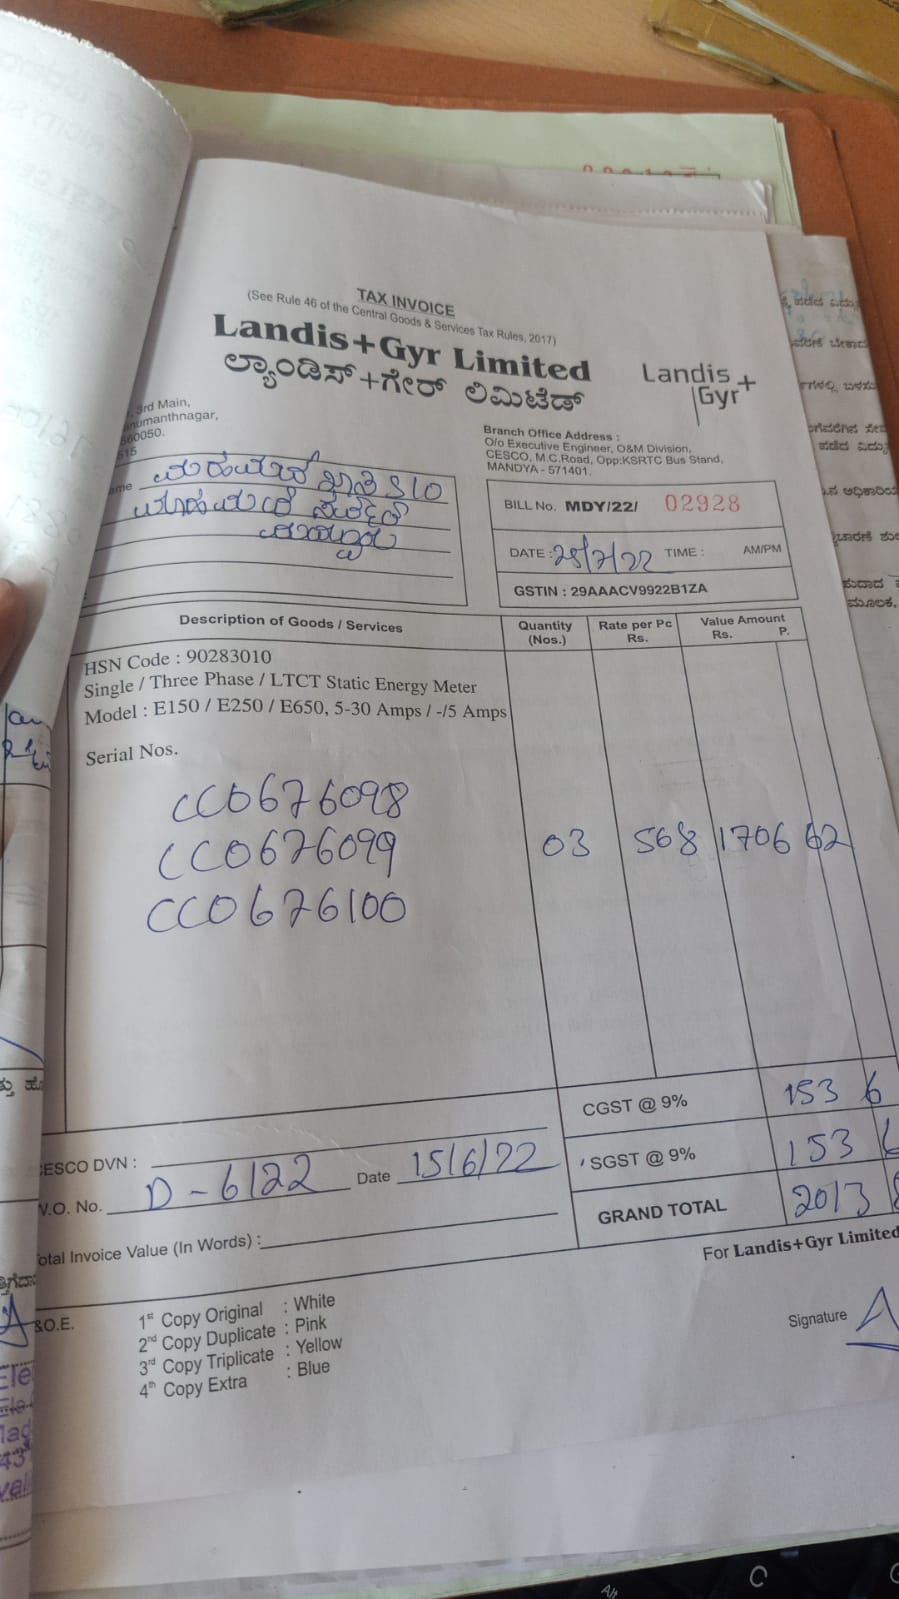 TAX INVOICE
(See Rule 46 of the Central Goods & Services Tax Rules, 2017)
Landis+Gyr Limited
ಲ್ಯಾಂಡಿಸ್+ಗೇರ್ ಲಿಮಿಟೆಡ್
Landis+
Gyr
3rd Main,
560050.
Branch Office Address :
O/o Executive Engineer, O&M Division,
CESCO, M.C.Road, Opp:KSRTC Bus Stand,
MANDYA - 571401.
S/O
BILL No. MDY/22/ 02928
DATE : 25/7/22 TIME : AM/PM
GSTIN : 29AAACV9922B1ZA
Description of Goods / Services
Quantity (Nos.)
Rate per Pc Rs.
Value Amount Rs. P.
HSN Code : 90283010
Single / Three Phase / LTCT Static Energy Meter
Model : E150 / E250 / E650, 5-30 Amps / -/5 Amps
Serial Nos.
CC0676098
CC0676099 03 568 1706 62
CC0676100
CGST @ 9% 153 6
SGST @ 9% 153 6
GRAND TOTAL 2013
CESCO DVN :
W.O. No. D-6/22 Date 15/6/22
Total Invoice Value (In Words) :
For Landis+Gyr Limited
&O.E.
1st Copy Original : White
2nd Copy Duplicate : Pink
3rd Copy Triplicate : Yellow
4th Copy Extra : Blue
Signature
Alt
C